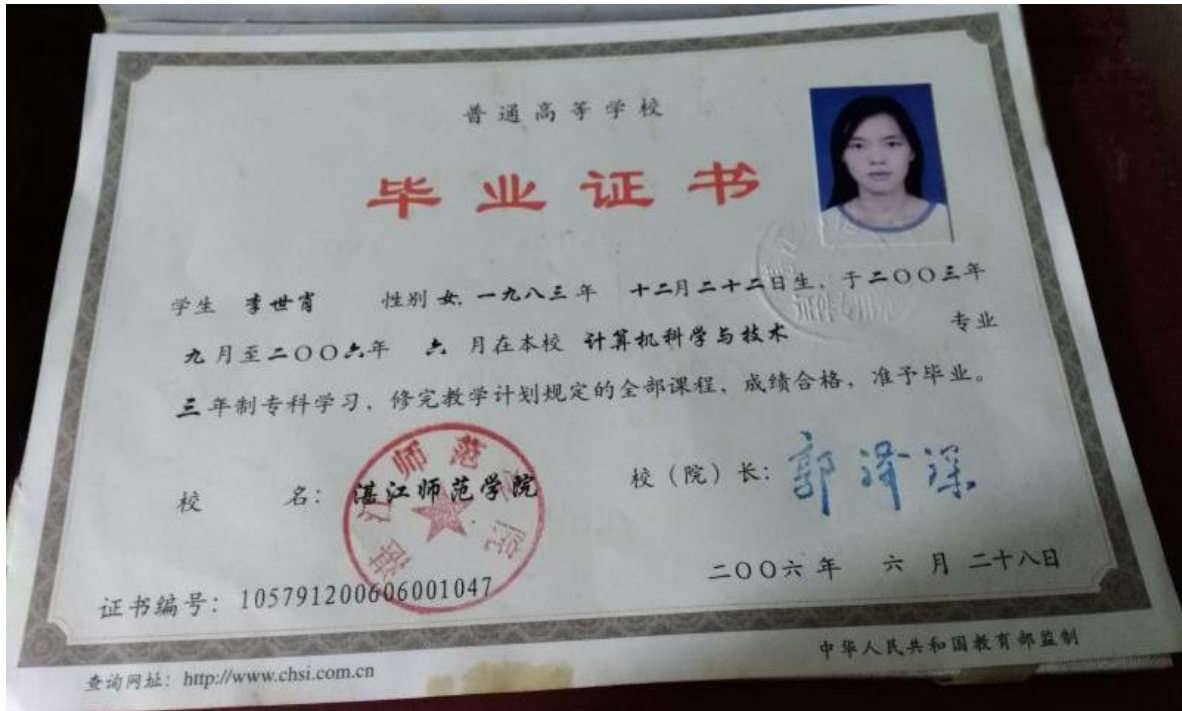 普通高等学校
毕业证书
学生 李世宵 性别 女, 一九八三年 十二月二十二日生, 于二〇〇三年
九月至二〇〇六年 六 月在本校 计算机科学与技术 专业
三年制专科学习, 修完教学计划规定的全部课程, 成绩合格, 准予毕业。
校 名: 湛江师范学院
校（院）长: 郭泽深
湛江师范学院
证件专用
二〇〇六年 六 月 二十八日
证书编号: 105791200606001047
中华人民共和国教育部监制
查询网址: http://www.chsi.com.cn